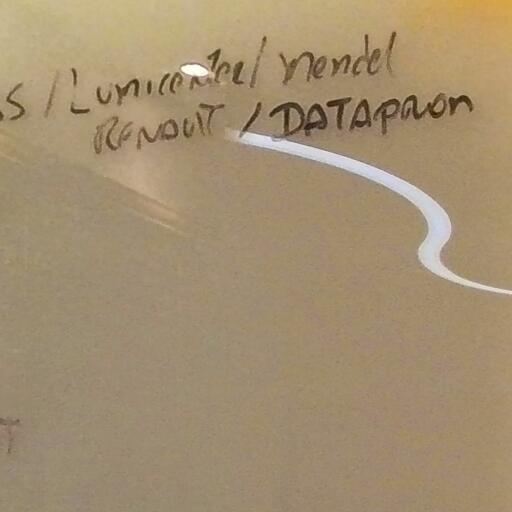 S / Lumicenter / mendel
RENAULT / DATAPROM
T